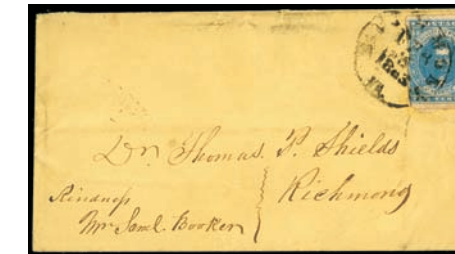 1863
Dr. Thomas. P. Shields
Richmond
Kindness
Mr Saml. Booker